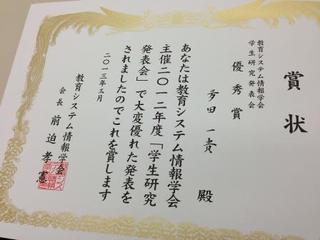 賞状
教育システム情報学会
学生研究発表会
優秀賞
一貴 殿
あなたは教育システム情報学会
主催二〇一二年度「学生研究
発表会」で大変優れた発表を
されましたのでこれを賞します
二〇一三年三月
教育システム情報学会
会長 前迫孝憲